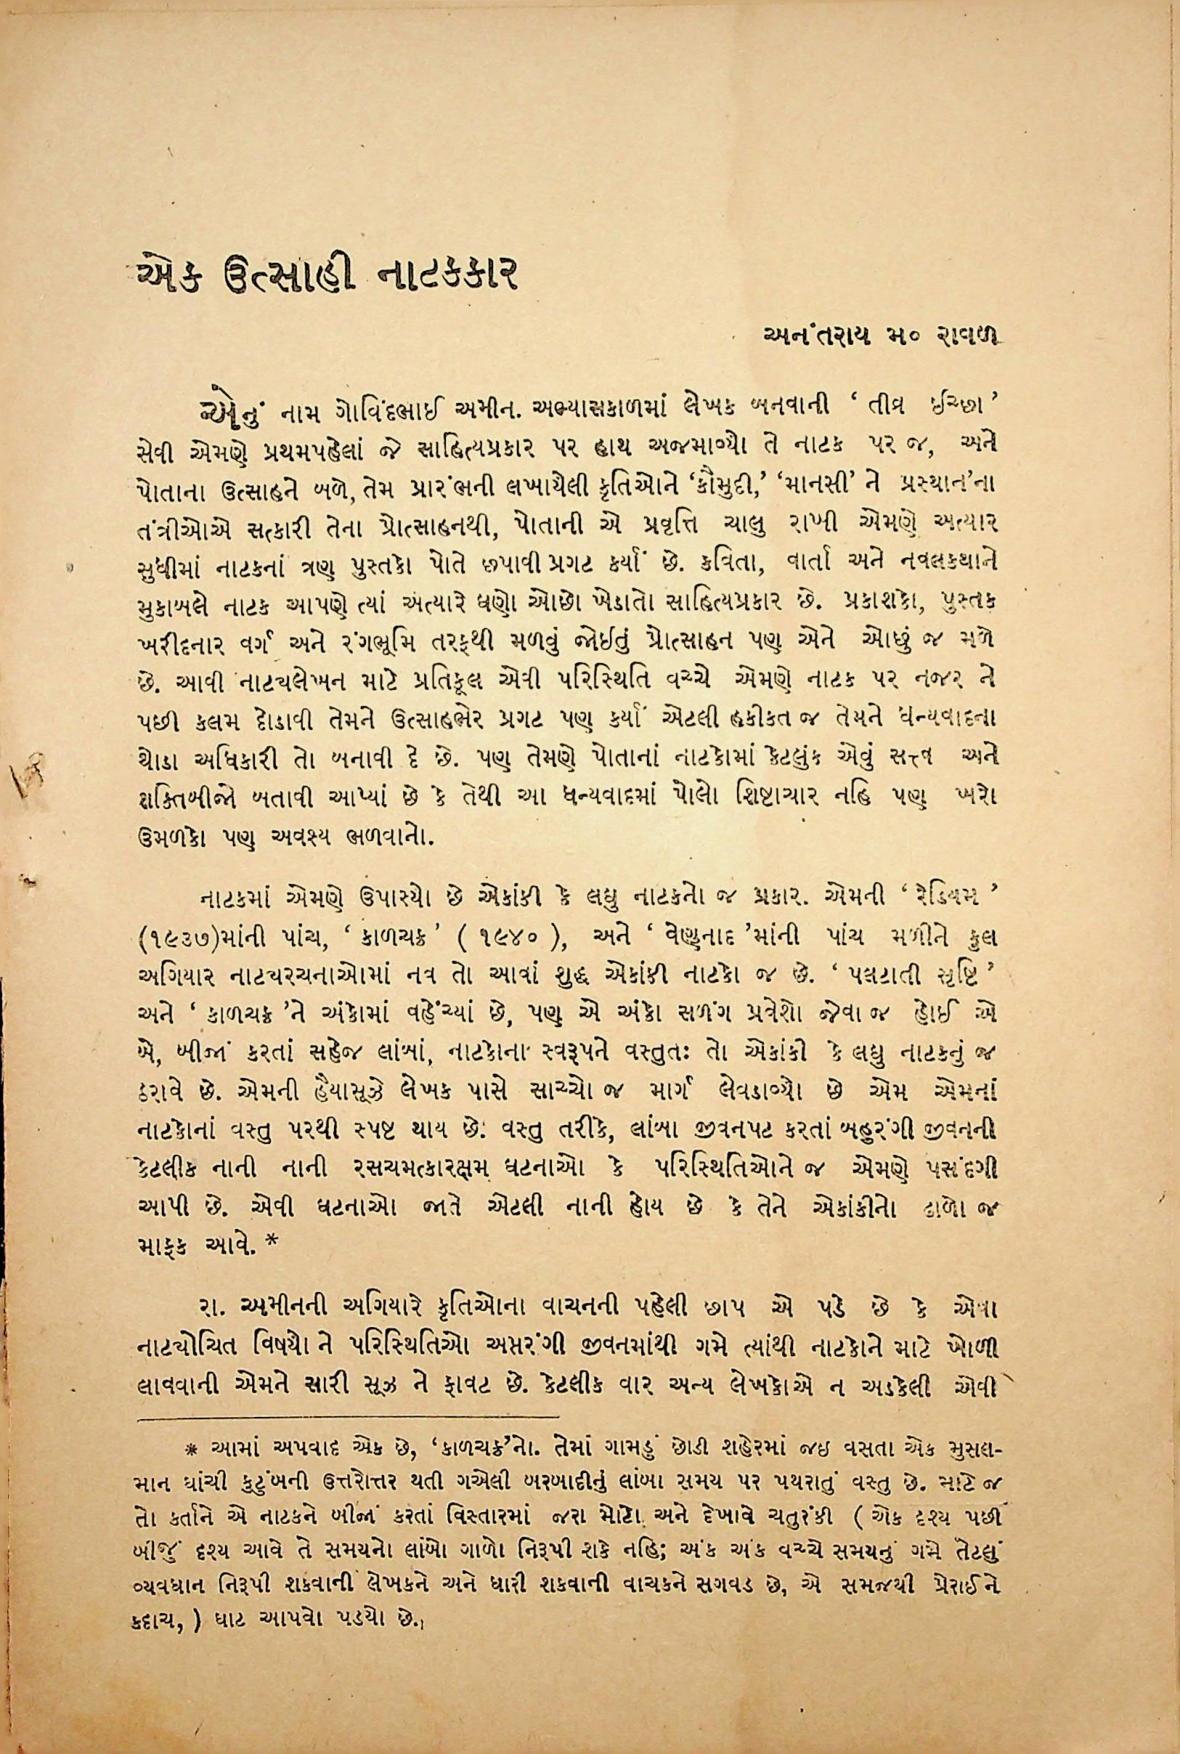 એક ઉત્સાહી નાટકકાર
અનંતરાય મ૦ રાવળ
એનું નામ ગોવિંદભાઈ અમીન. અભ્યાસકાળમાં લેખક બનવાની ‘ તીવ્ર ઈચ્છા ’
સેવી એમણે પ્રથમપહેલાં જે સાહિત્યપ્રકાર પર હાથ અજમાવ્યો તે નાટક પર જ, અને
પોતાના ઉત્સાહને બળે, તેમ પ્રારંભની લખાયેલી કૃતિઓને ‘કૌમુદી,’ ‘માનસી’ ને પ્રસ્થાન’ના
તંત્રીઓએ સત્કારી તેના પ્રોત્સાહનથી, પોતાની એ પ્રવૃત્તિ ચાલુ રાખી એમણે અત્યાર
સુધીમાં નાટકનાં ત્રણ પુસ્તકો પોતે છપાવી પ્રગટ કર્યાં છે. કવિતા, વાર્તા અને નવલકથાને
મુકાબલે નાટક આપણે ત્યાં અત્યારે ઘણો ઓછો ખેડાતો સાહિત્યપ્રકાર છે. પ્રકાશકો, પુસ્તક
ખરીદનાર વર્ગ અને રંગભૂમિ તરફથી મળવું જોઈતું પ્રોત્સાહન પણ એને ઓછું જ મળે
છે. આવી નાટ્યલેખન માટે પ્રતિકૂલ એવી પરિસ્થિતિ વચ્ચે એમણે નાટક પર નજર ને
પછી કલમ દોડાવી તેમને ઉત્સાહભેર પ્રગટ પણ કર્યાં એટલી હકીકત જ તેમને ધન્યવાદના
થોડા અધિકારી તો બનાવી દે છે. પણ તેમણે પોતાનાં નાટકોમાં કેટલુંક એવું સત્ત્વ અને
શક્તિબીજો બતાવી આપ્યાં છે કે તેથી આ ધન્યવાદમાં પોલો શિષ્ટાચાર નહિ પણ ખરો
ઉમળકો પણ અવશ્ય ભળવાનો.
નાટકમાં એમણે ઉપાસ્યો છે એકાંકી કે લઘુ નાટકનો જ પ્રકાર. એમની ‘ રેડિયમ ’
(૧૯૩૭)માંની પાંચ, ‘ કાળચક્ર ’ ( ૧૯૪૦ ), અને ‘ વેણુનાદ ’માંની પાંચ મળીને કુલ
અગિયાર નાટ્યરચનાઓમાં નવ તો આવાં શુદ્ધ એકાંકી નાટકો જ છે. ‘ પલટાતી સૃષ્ટિ ’
અને ‘ કાળચક્ર ’ને અંકોમાં વહેંચ્યાં છે, પણ એ અંકો સળંગ પ્રવેશો જેવા જ હોઈ એ
બે, બીજાં કરતાં સહેજ લાંબાં, નાટકોના સ્વરૂપને વસ્તુતઃ તો એકાંકી કે લઘુ નાટકનું જ
ઠરાવે છે. એમની હૈયાસૂઝે લેખક પાસે સાચ્ચો જ માર્ગ લેવડાવ્યો છે એમ એમનાં
નાટકોનાં વસ્તુ પરથી સ્પષ્ટ થાય છે. વસ્તુ તરીકે, લાંબા જીવનપટ કરતાં બહુરંગી જીવનની
કેટલીક નાની નાની રસચમત્કારક્ષમ ઘટનાઓ કે પરિસ્થિતિઓને જ એમણે પસંદગી
આપી છે. એવી ઘટનાઓ જાતે એટલી નાની હોય છે કે તેને એકાંકીનો ઢાળો જ
માફક આવે. *
રા. અમીનની અગિયારે કૃતિઓના વાચનની પહેલી છાપ એ પડે છે કે એવા
નાટ્યોચિત વિષયો ને પરિસ્થિતિઓ સપ્તરંગી જીવનમાંથી ગમે ત્યાંથી નાટકોને માટે ખોળી
લાવવાની એમને સારી સૂઝ ને ફાવટ છે. કેટલીક વાર અન્ય લેખકોએ ન અડકેલી એવી
* આમાં અપવાદ એક છે, ‘કાળચક્ર’નો. તેમાં ગામડું છોડી શહેરમાં જઇ વસતા એક મુસલ-
માન ઘાંચી કુટુંબની ઉત્તરોત્તર થતી ગએલી બરબાદીનું લાંબા સમય પર પથરાતું વસ્તુ છે. માટે જ
તો કર્તાને એ નાટકને બીજાં કરતાં વિસ્તારમાં જરા મોટો અને દેખાવે ચતુરંકી ( એક દૃશ્ય પછી
બીજું દૃશ્ય આવે તે સમયનો લાંબો ગાળો નિરૂપી શકે નહિ; અંક અંક વચ્ચે સમયનું ગમે તેટલું
વ્યવધાન નિરૂપી શકવાની લેખકને અને ધારી શકવાની વાચકને સગવડ છે, એ સમજથી પ્રેરાઈને
કદાચ, ) ઘાટ આપવો પડ્યો છે.